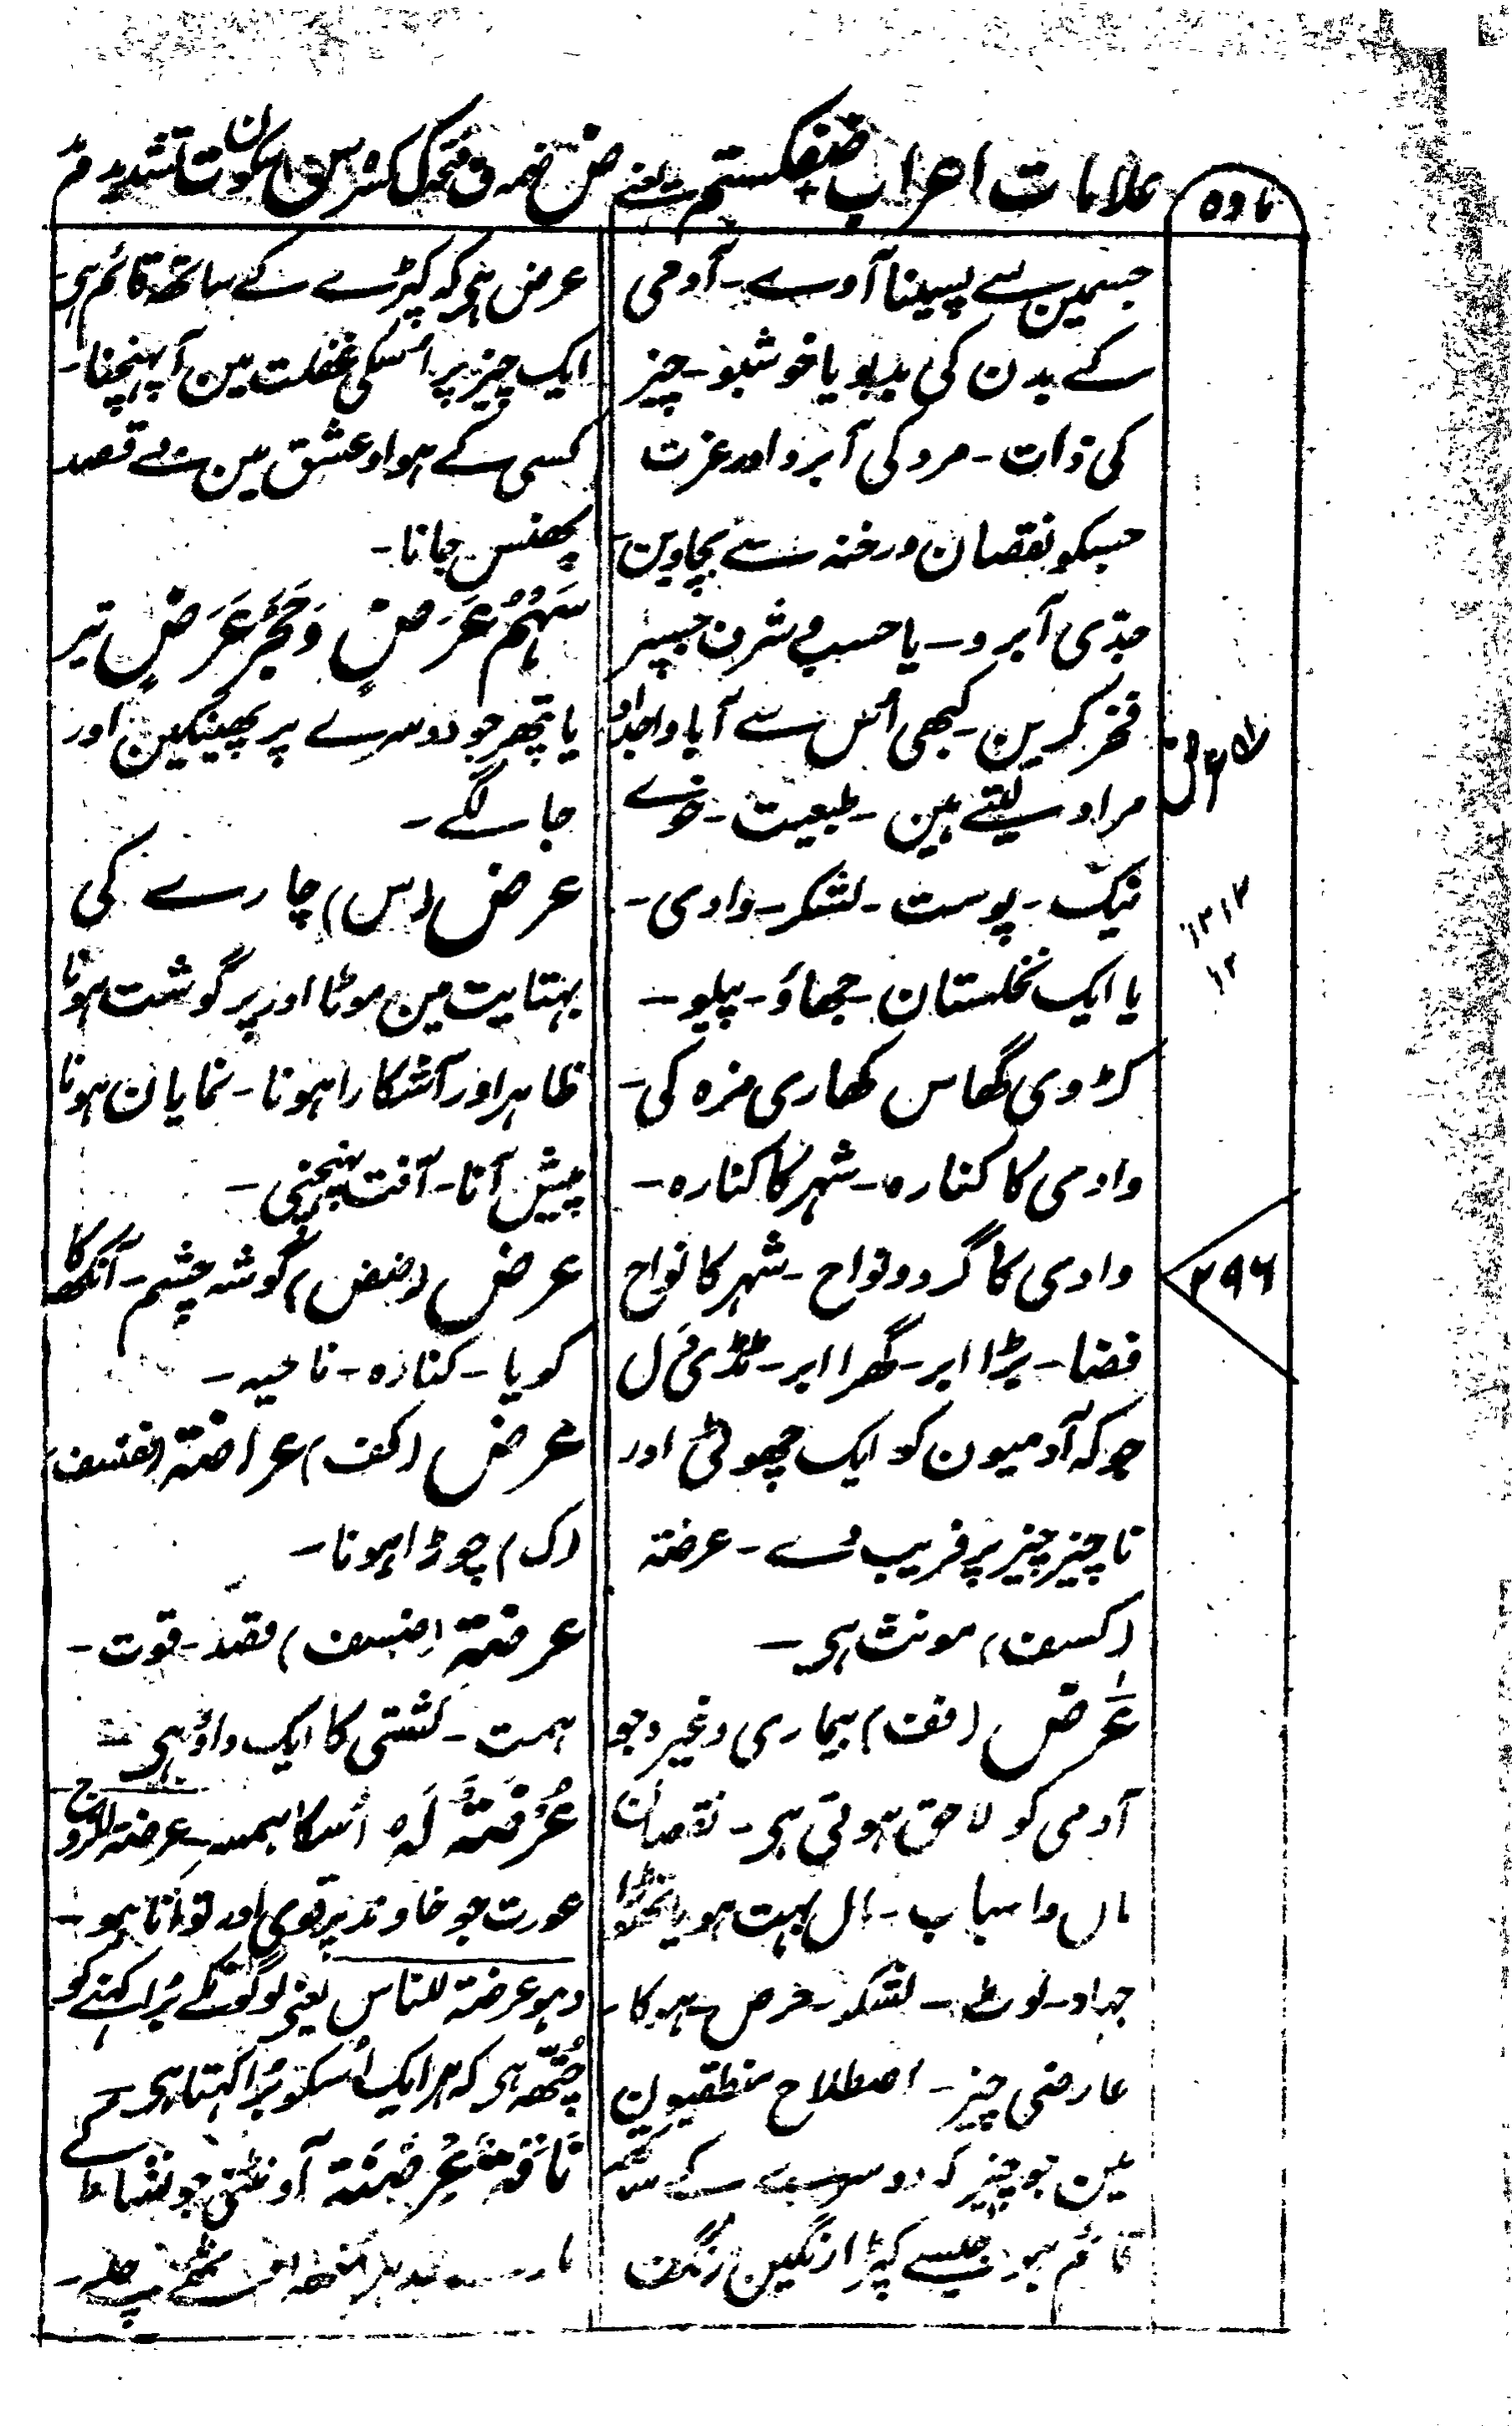 مادہ
علامات اعراب ضفکستم یعنے ض ضمہ ف فتحہ ک کسرہ س سکون ت تشدید م
جسمین سے پسینا آوے - آدمی
کے بدن کی بدبو یا خوشبو - چیز
کی ذات - مرد کی آبرو اور عزت
جسکو نقصان ورخنہ سے بچاوین
جدّی آبرو - یا حسب و شرف جسپر
فخر کرین - کبھی اُس سے آبا واجداد
مراد لیتے ہین - طبعیت - خوے
نیک - پوست - لشکر - وادی -
یا ایک نخلستان - جھاؤ - پیلو -
کڑوی گھاس کھاری مزہ کی -
وادی کا کنارہ - شہر کا کنارہ -
وادی کا گرد ونواح - شہر کا نواح
فضا - بڑا ابر - گھرا ابر - ٹڈی دَل
جو کہ آدمیون کو ایک چھوٹی اور
ناچیز چیز پر فریب دے - عرضتہ
(کسف) مونث ہی -
عَرَض (فف) بیماری وغیرہ جو
آدمی کو لاحق ہوتی ہی - نقصان
مال واسباب - مال بہت ہو یا تھوڑا
جہاد - لوٹ - لشکر - حرص
عارضی چیز - اصطلاح منطقیون
مین جو چیز کہ دوسرے کے ساتھ
قائم ہو - جیسے کپڑا رنگین رنگت
عرض ہی کہ کپڑے کے ساتھ قائم ہی
ایک چیز پر اُسکی غفلت مین آپہنچنا -
کسی کے ہوا وعشق مین بے قصد
پھنس جانا -
سَہْمُ عَرَضٍ وَحَجَرُ عَرَضٍ تیر
یا پتھر جو دوسرے پر پھینکین اور
جا لگے -
عرض (س) چارے کی
بہتایت مین موٹا اور پر گوشت ہونا
ظاہر اور آشکارا ہونا - نمایان ہونا
پیش آنا - آفت پہنچنی -
عرض (ضض) گوشہ چشم - آنکھ کا
کویا - کنارہ - ناحیہ -
عرض (کف) عراضتہ (ففسف)
(ک) چوڑا ہونا -
عرضتہ (ضسف) قصد - قوت -
ہمت - کشتی کا ایک داؤ ہی -
عُرْضَتہٌ لَہٗ اُسکا ہمسر - عرضتہ للزوج
عورت جو خاوند پر قوی اور توانا ہو -
وہو عرضتہ للناس یعنی لوگونکے بُرا کہنے کو
ہی کہ ہر ایک اُسکو بُرا کہتا ہی -
نَاقَتہٌ عِرَضْنَتہ اونٹنی جو نشاط کے
مارے چلے -
۲۹۶
۱۲